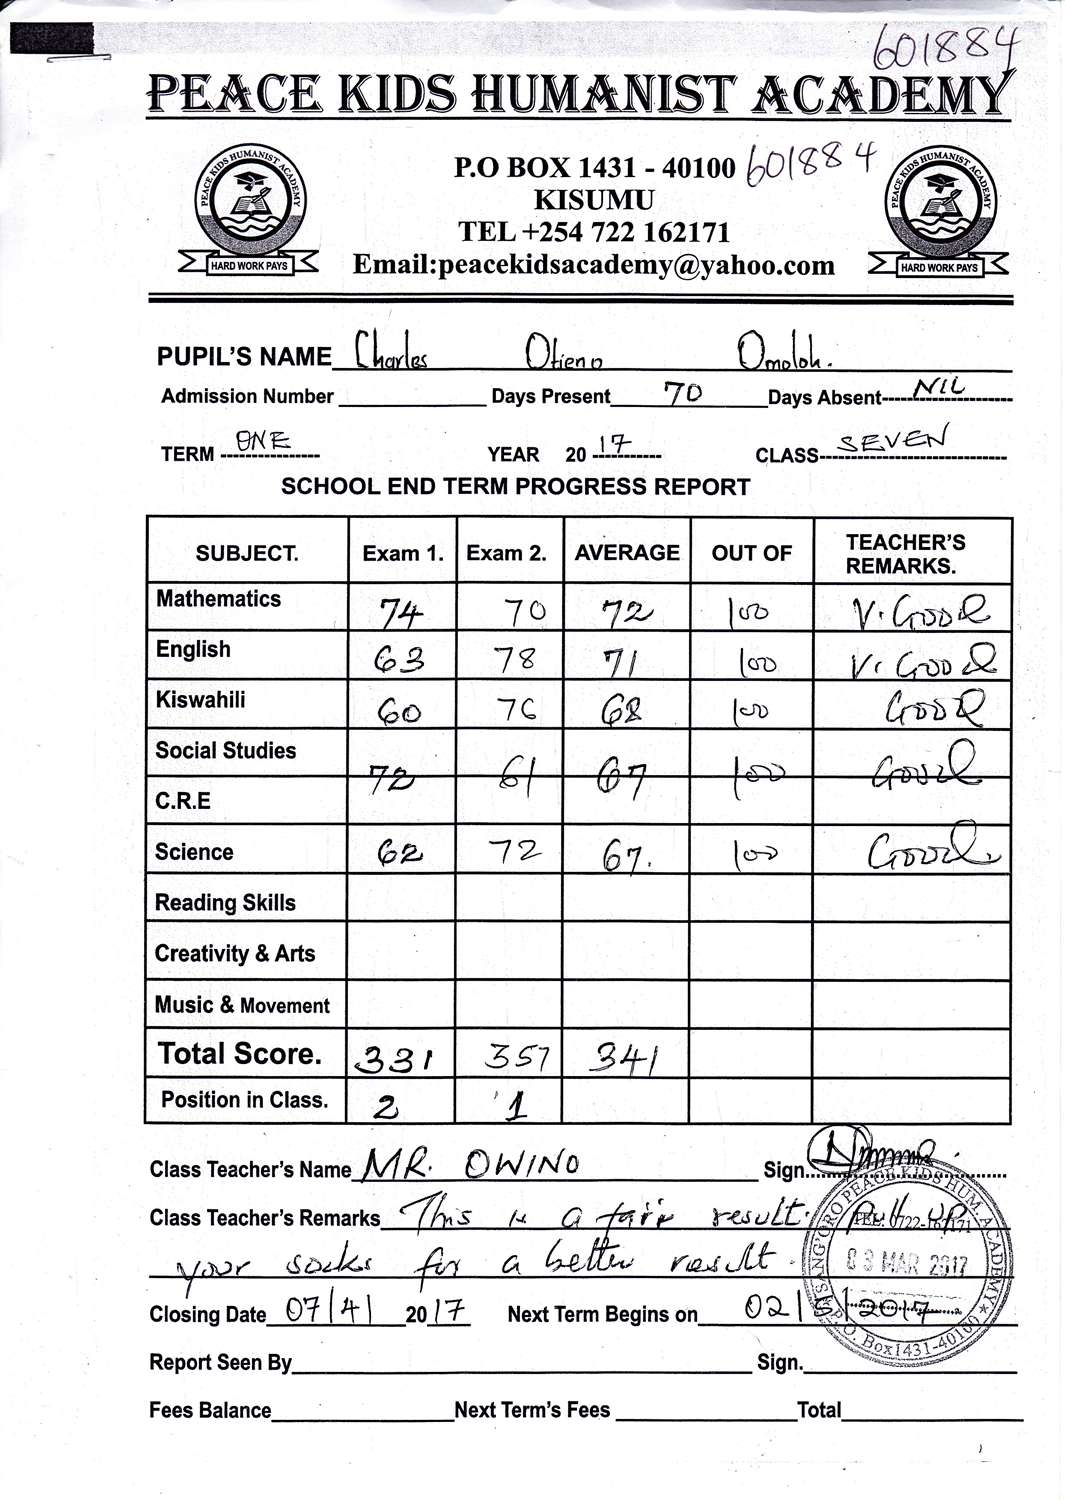 601884
PEACE KIDS HUMANIST ACADEMY
PEACE KIDS HUMANIST ACADEMY
HARD WORK PAYS
P.O BOX 1431 - 40100 601884
KISUMU
TEL +254 722 162171
Email:peacekidsacademy@yahoo.com
PEACE KIDS HUMANIST ACADEMY
HARD WORK PAYS
PUPIL'S NAME Charles Otieno Omoloh.
Admission Number Days Present 70 Days Absent NIL
TERM ONE YEAR 2017 CLASS SEVEN
SCHOOL END TERM PROGRESS REPORT
SUBJECT. Exam 1. Exam 2. AVERAGE OUT OF TEACHER'S REMARKS.
Mathematics 74 70 72 100 V. Good
English 63 78 71 100 V. Good
Kiswahili 60 76 68 100 Good
Social Studies
72 61 67 100 Good
C.R.E
Science 62 72 67. 100 Good.
Reading Skills
Creativity & Arts
Music & Movement
Total Score. 331 357 341
Position in Class. 2 1
Class Teacher's Name MR. OWINO Sign.
Class Teacher's Remarks This is a fair result. Pull up
your socks for a better result.
Closing Date 07/4/ 2017 Next Term Begins on 02/5/2017
Report Seen By Sign.
Fees Balance Next Term's Fees Total
PEACE KIDS HUM. ACADEMY
TEL: 0722-162171
MAR 2017
P.O. Box 1431-40100